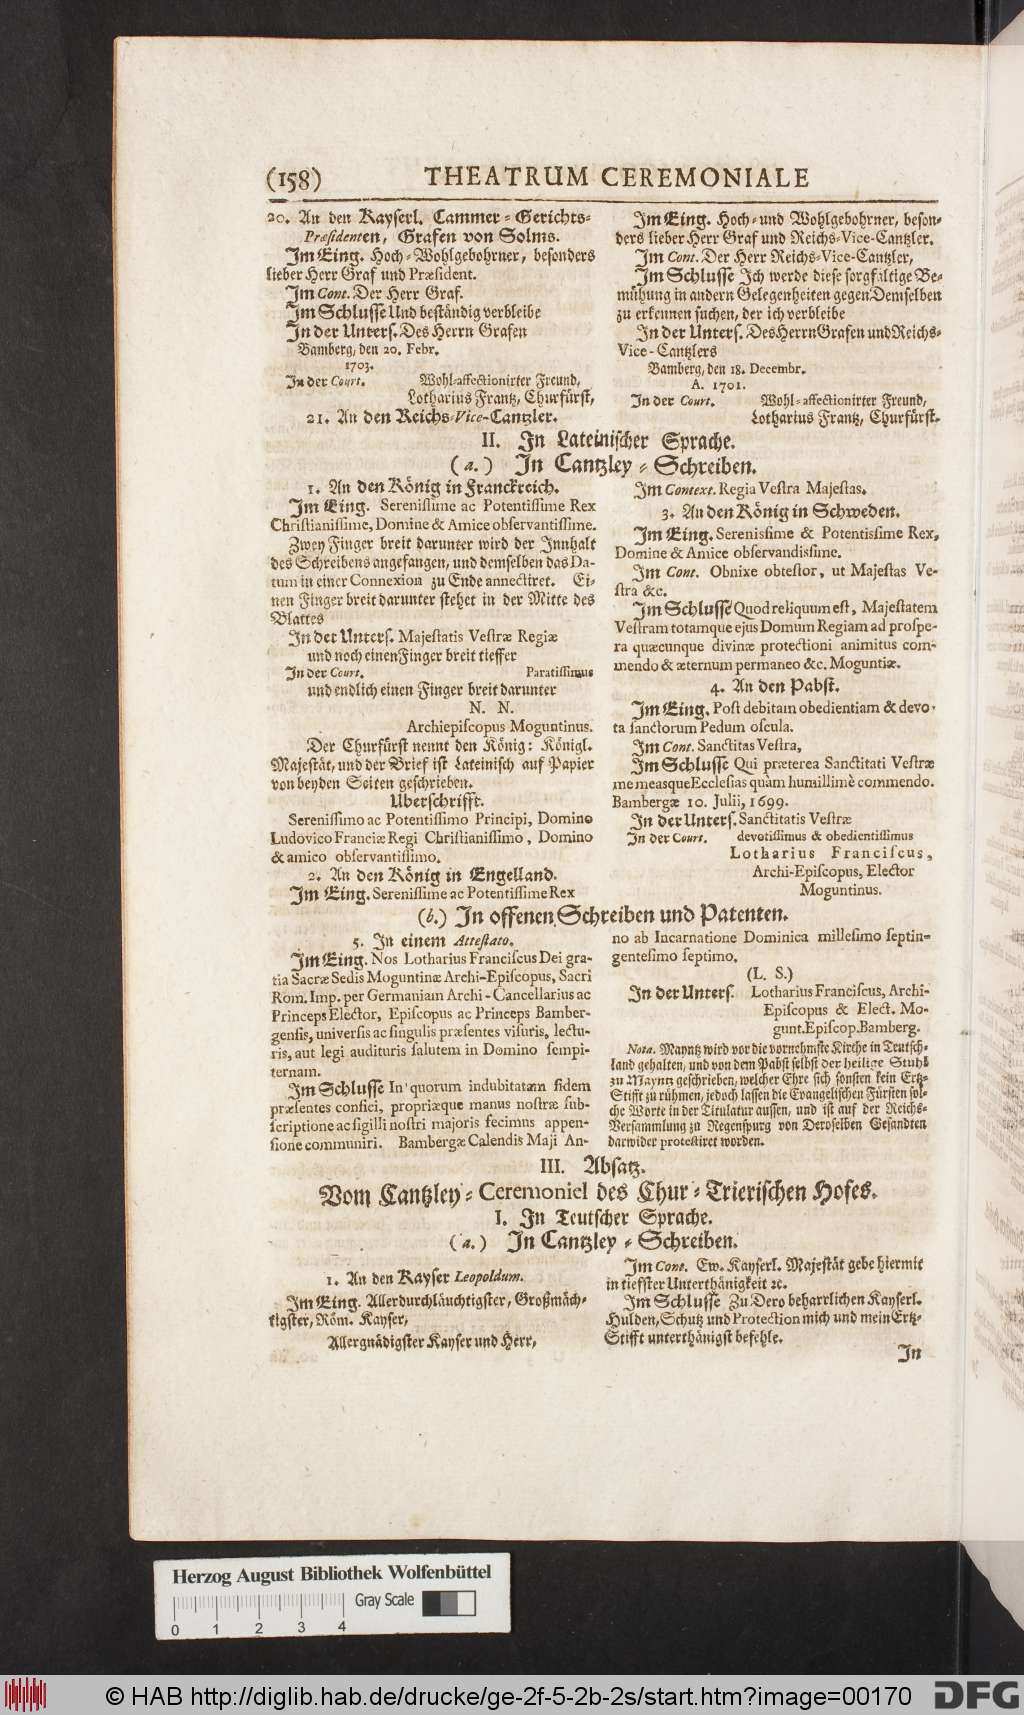 (158) THEATRUM CEREMONIALE
20. An den Kayserl. Cammer-Gerichts-
Præsidenten, Grafen von Solms.
Im Eing. Hoch-Wohlgebohrner, besonders
lieber Herr Graf und Præsident.
Im Cont. Der Herr Graf.
Im Schlusse Und beständig verbleibe
In der Unters. Des Herrn Grafen
Bamberg, den 20. Febr.
1703.
In der Court. Wohl-affectionirter Freund,
Lotharius Frantz, Churfürst,
21. An den Reichs-Vice-Cantzler.
Im Eing. Hoch- und Wohlgebohrner, beson-
ders lieber Herr Graf und Reichs-Vice-Cantzler.
Im Cont. Der Herr Reichs-Vice-Cantzler,
Im Schlusse Ich werde diese sorgfältige Be-
mühung in andern Gelegenheiten gegen Demselben
zu erkennen suchen, der ich verbleibe
In der Unters. Des Herrn Grafen und Reichs-
Vice-Cantzlers
Bamberg, den 18. Decembr.
A. 1701.
In der Court. Wohl-affectionirter Freund,
Lotharius Frantz, Churfürst.
II. In Lateinischer Sprache.
(a.) In Cantzley-Schreiben.
1. An den König in Franckreich.
Im Eing. Serenissime ac Potentissime Rex
Christianissime, Domine & Amice observantissime.
Zwey Finger breit darunter wird der Innhalt
des Schreibens angefangen, und demselben das Da-
tum in einer Connexion zu Ende annectiret. Ei-
nen Finger breit darunter stehet in der Mitte des
Blattes
In der Unters. Majestatis Vestræ Regiæ
und noch einen Finger breit tieffer
In der Court. Paratissimus
und endlich einen Finger breit darunter
N. N.
Archiepiscopus Moguntinus.
Der Churfürst nennt den König: Königl.
Majestät, und der Brief ist Lateinisch auf Papier
von beyden Seiten geschrieben.
Uberschrifft.
Serenissimo ac Potentissimo Principi, Domino
Ludovico Franciæ Regi Christianissimo, Domino
& amico observantissimo.
2. An den König in Engelland.
Im Eing. Serenissime ac Potentissime Rex
Im Context. Regia Vestra Majestas.
3. An den König in Schweden.
Im Eing. Serenissime & Potentissime Rex,
Domine & Amice observandissime.
Im Cont. Obnixe obtestor, ut Majestas Ve-
stra &c.
Im Schlusse Quod reliquum est, Majestatem
Vestram totamque ejus Domum Regiam ad prospe-
ra quæcunque divinæ protectioni animitus com-
mendo & æternum permaneo &c. Moguntiæ.
4. An den Pabst.
Im Eing. Post debitam obedientiam & devo-
ta sanctorum Pedum oscula.
Im Cont. Sanctitas Vestra,
Im Schlusse Qui præterea Sanctitati Vestræ
me measque Ecclesias quàm humillimè commendo.
Bambergæ 10. Julii, 1699.
In der Unters. Sanctitatis Vestræ
In der Court. devotissimus & obedientissimus
Lotharius Franciscus,
Archi-Episcopus, Elector
Moguntinus.
(b.) In offenen Schreiben und Patenten.
5. In einem Attestato.
Im Eing. Nos Lotharius Franciscus Dei gra-
tia Sacræ Sedis Moguntinæ Archi-Episcopus, Sacri
Rom. Imp. per Germaniam Archi-Cancellarius ac
Princeps Elector, Episcopus ac Princeps Bamber-
gensis, universis ac singulis præsentes visuris, lectu-
ris, aut legi audituris salutem in Domino sempi-
ternam.
Im Schlusse In quorum indubitatam fidem
præsentes confici, propriæque manus nostræ sub-
scriptione ac sigilli nostri majoris fecimus appen-
sione communiri. Bambergæ Calendis Maji An-
no ab Incarnatione Dominica millesimo septin-
gentesimo septimo.
(L. S.)
In der Unters. Lotharius Franciscus, Archi-
Episcopus & Elect. Mo-
gunt. Episcop. Bamberg.
Nota. Mayntz wird vor die vornehmste Kirche in Teutsch-
land gehalten, und von dem Pabst selbst der heilige Stuhl
zu Mayntz geschrieben, welcher Ehre sich sonsten kein Ertz-
Stifft zu rühmen, jedoch lassen die Evangelischen Fürsten sol-
che Worte in der Titulatur aussen, und ist auf der Reichs-
Versammlung zu Regenspurg von Deroselben Gesandten
darwider protestiret worden.
III. Absatz.
Vom Cantzley-Ceremoniel des Chur-Trierischen Hofes.
I. In Teutscher Sprache.
(a.) In Cantzley-Schreiben.
1. An den Kayser Leopoldum.
Im Eing. Allerdurchläuchtigster, Großmäch-
tigster, Röm. Kayser,
Allergnädigster Kayser und Herr,
Im Cont. Ew. Kayserl. Majestät gebe hiermit
in tiefster Unterthänigkeit ꝛc.
Im Schlusse Zu Dero beharrlichen Kayserl.
Hulden, Schutz und Protection mich und mein Ertz-
Stifft unterthänigst befehle.
In
Herzog August Bibliothek Wolfenbüttel
Gray Scale
0 1 2 3 4
© HAB http://diglib.hab.de/drucke/ge-2f-5-2b-2s/start.htm?image=00170
DFG